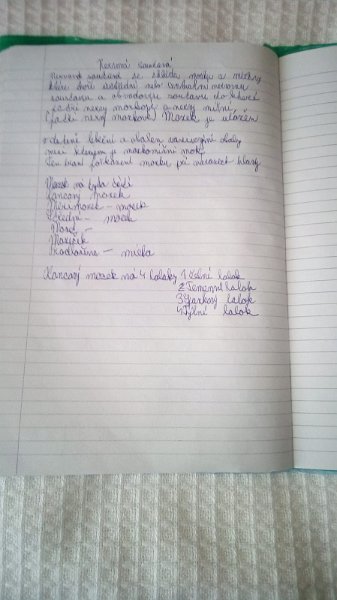 Nervová soustava
Nervová soustava se skládá mozku a míchy
které tvoří ústřední nebo centrální nervovou
soustavu a obvodovou soustavu do které
patří nervy mozkové a nervy míšní.
(patří nervy mozkové) Mozek je uložen
v dutině lebeční a obalen vazivovými obaly
mezi kterými je mozkomíšní mok
Ten brání poškození mozku při nárazech hlavy
Mozek má tyto části
koncový mozek
Mezimozek – mozek
Střední – mozek
Most –
Mozeček
Prodloužená – mícha
Koncový mozek má 4 laloky 1 čelní lalok
2 Temenní lalok
3 Spánkový lalok
4 Týlní lalok